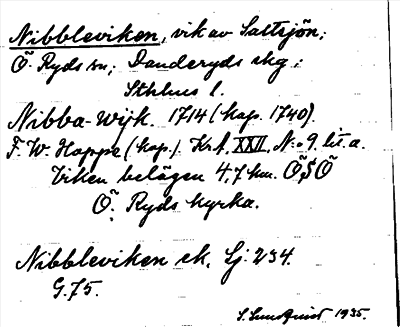 Nibbleviken, vik av Saltsjön;
Ö. Ryds sn; Danderyds skg;
Sthlms l.
Nibba-wijk. 1714 (kop. 1740).
F. W. Hoppe (kop.). Kr. A. XXII, N:o 9 lit. a.
Viken belägen 4,7 km. ÖSÖ
Ö. Ryds kyrka.
Nibbleviken ek. Lj: 234.
G. 75.
S. Lundquist 1935.